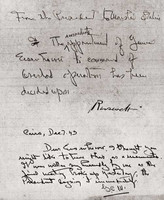 From the President to Marshal Stalin
immediate
The appointment of General
Eisenhower to command of
Overlord operation has been
decided upon
Roosevelt
Cairo, Dec. 7, 43
Dear Eisenhower, I thought you
might like to have this as a memento.
It was written very hurriedly by me as the
final meeting broke up yesterday, the
President signing it immediately.
G.C.M.